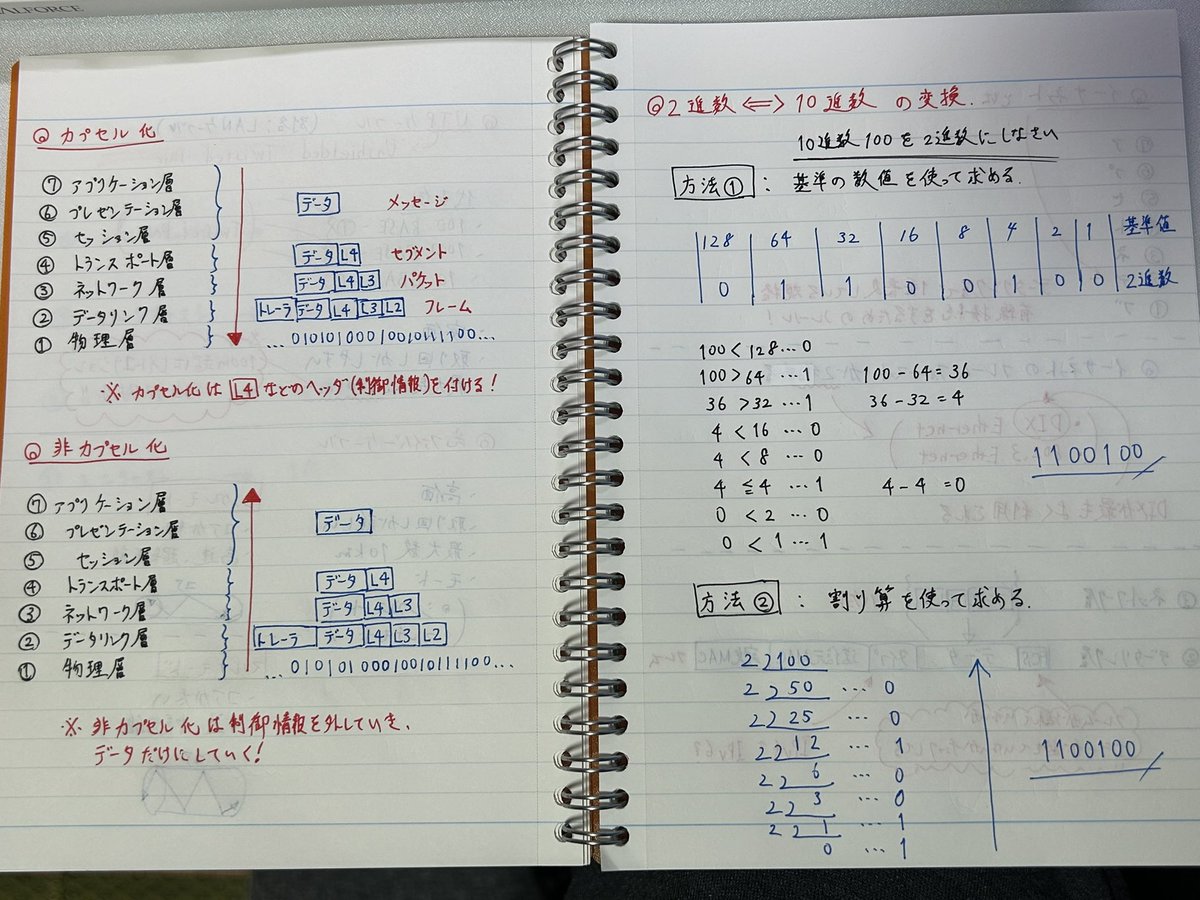 ALFORCE
Q カプセル化
⑦ アプリケーション層
⑥ プレゼンテーション層 データ メッセージ
⑤ セッション層
④ トランスポート層 データ L4 セグメント
③ ネットワーク層 データ L4 L3 パケット
② データリンク層 トレーラ データ L4 L3 L2 フレーム
① 物理層 ...01010100010010111100...
※ カプセル化は L4 などのヘッダ(制御情報)を付ける!
Q 非カプセル化
⑦ アプリケーション層
⑥ プレゼンテーション層 データ
⑤ セッション層
④ トランスポート層 データ L4
③ ネットワーク層 データ L4 L3
② データリンク層 トレーラ データ L4 L3 L2
① 物理層 ...01010100010010111100...
※ 非カプセル化は制御情報を外していき、
データだけにしていく!
Q 2進数 ⇔ 10進数 の変換.
10進数100を2進数にしなさい
方法① : 基準の数値を使って求める.
128 64 32 16 8 4 2 1 基準値
0 1 1 0 0 1 0 0 2進数
100<128...0
100>64...1 100-64=36
36>32...1 36-32=4
4<16...0
4<8...0
4≦4...1 4-4=0
0<2...0
0<1...1
1100100
方法② : 割り算を使って求める.
2 100
2 50 ... 0
2 25 ... 0
2 12 ... 1
2 6 ... 0
2 3 ... 0
2 1 ... 1
0 ... 1
1100100